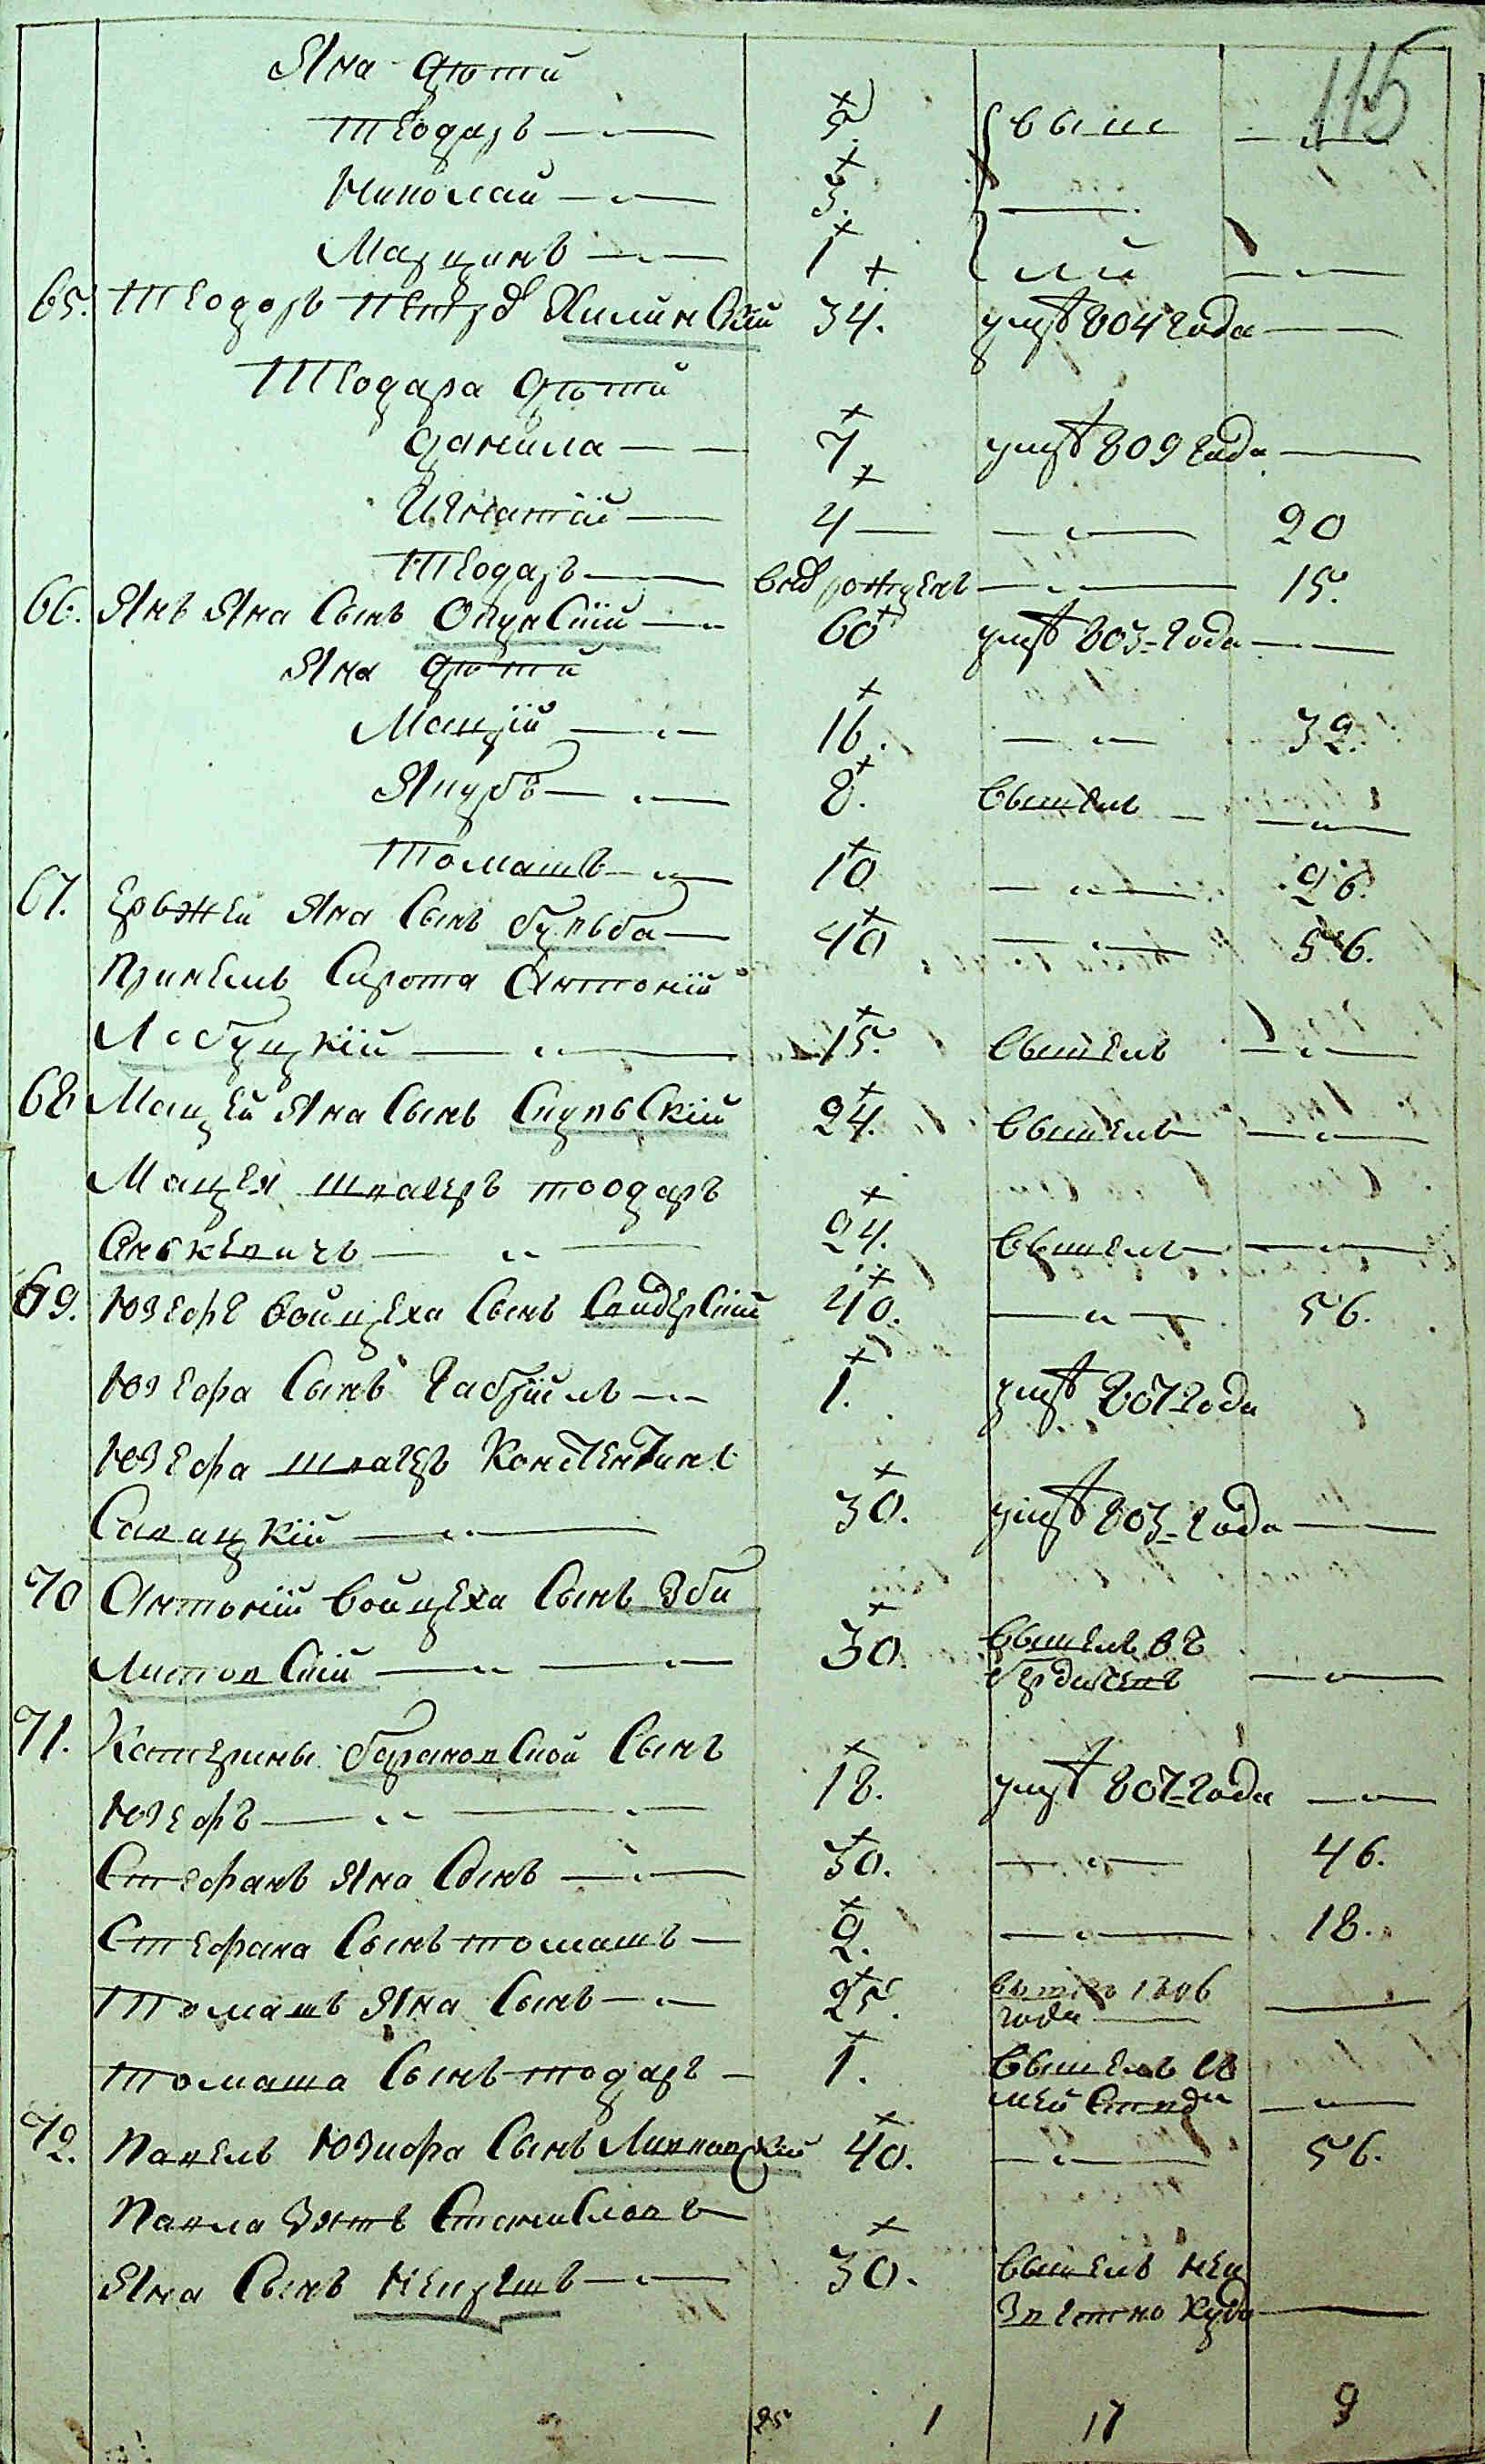 115
Яна дѣти
Теодоръ — 5. {выш —
Николай — 3. —
Марцинъ — 1 { ли —
65. Теодоръ Петра Хилинскій 34. умр 804 года —
Теодара дѣти
Данила — 7 умр 809 года —
Игнатій — 4 — 20
Теодаръ — внов рожденъ — 15.
66. Янъ Яна Сынъ 60 умр 803-года —
Яна дѣти
Мацѣй — 16. — 32.
Якубъ — 8. вышелъ —
Томашъ — 10 — 26.
67. Ержей Яна Сынъ бульба — 40 — 56.
Сирота Антоній
Лобуцкій — 15. вышелъ —
68 Мацей Яна Сынъ Скульскій 24. вышелъ —
Мацея швагеръ тоодаръ
— 24. вышелъ —
69. Юзефъ войцеха Сынъ 40. — 56.
Юзефа Сынъ Габріель — 1. умр 807 года
Юзефа швагеръ Константинъ
Савицкій — 30. умр 803-года —
70 Антоній войцеха Сынъ Зби
литовскій — 30. вышелъ въ
бердичевъ —
71. Катерины барановской Сынъ
Юзефъ — 18. умр 807-года —
Стефанъ Яна Сынъ — 30. — 46.
Стефана Сынъ томашъ — 2. — 18.
Томашъ Яна Сынъ — 25. 1806
года —
томаша Сынъ тодаръ — 1. вышелъ
—
72. Павелъ Юзифа Сынъ 40. — 56.
Павла Зять Станиславъ
Яна Сынъ — 30. вышелъ неи
звѣстно куда —
25 1 17 9